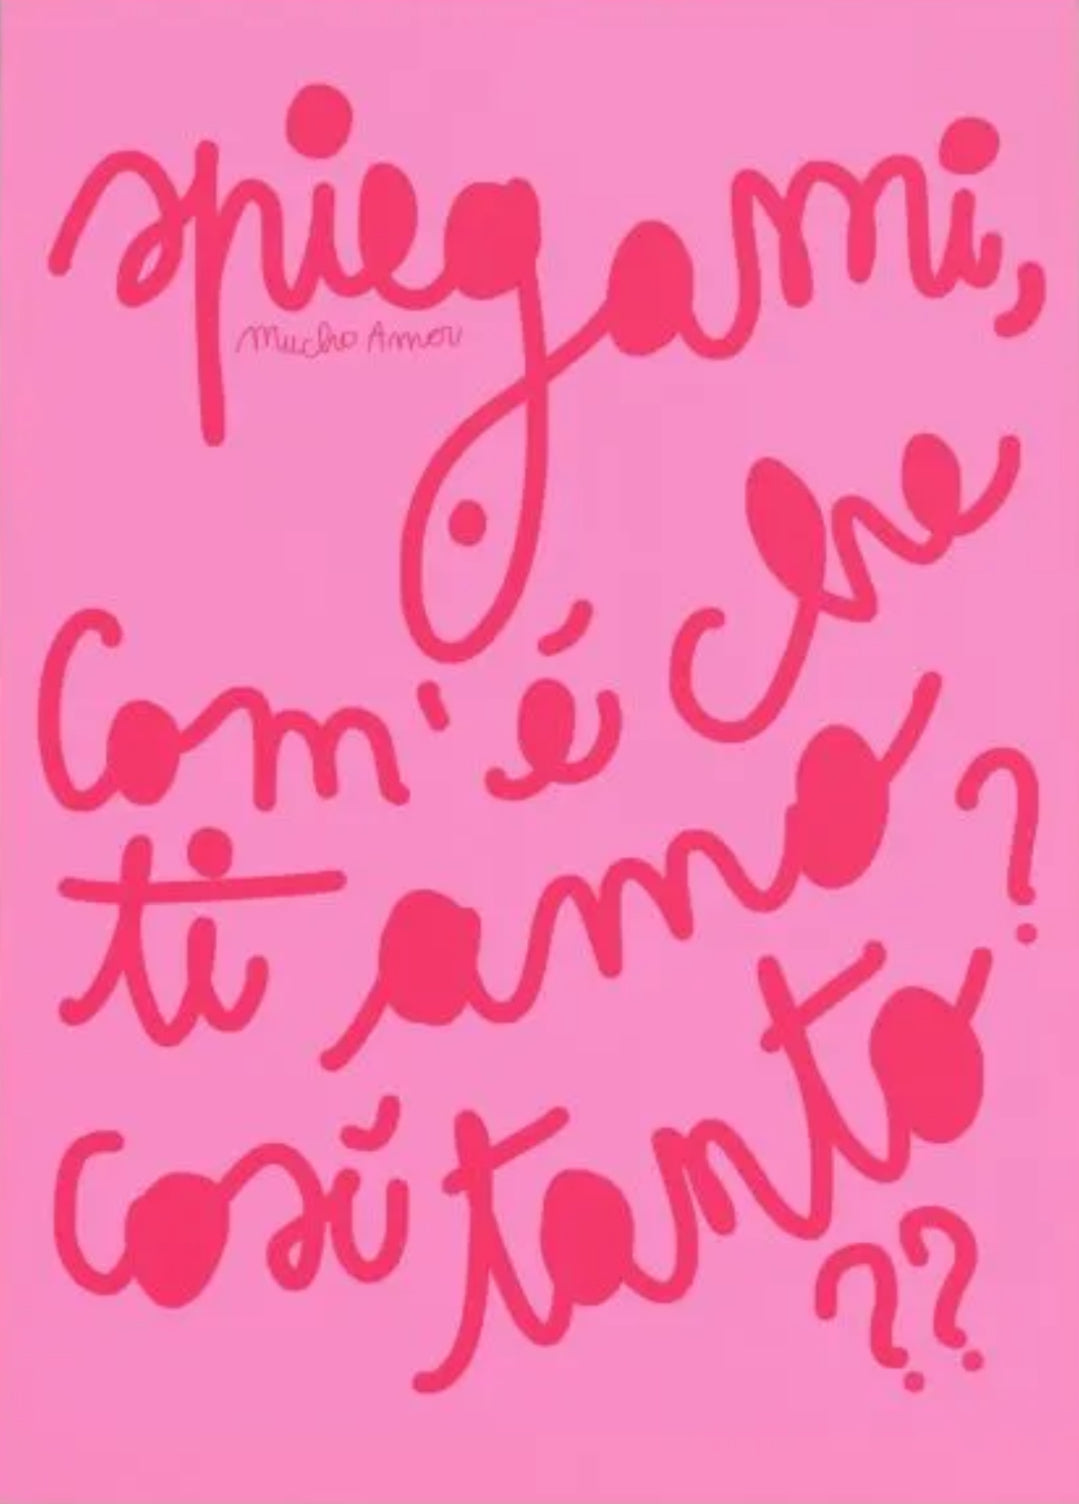 spiegami,
Mucho Amor
com'é che
ti amo?
cosí tanto
??